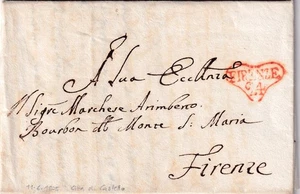 A Sua Eccllnza
Il Sigre Marchese Arimberto
Bourbon del Monte S: Maria
Firenze
FIRENZE